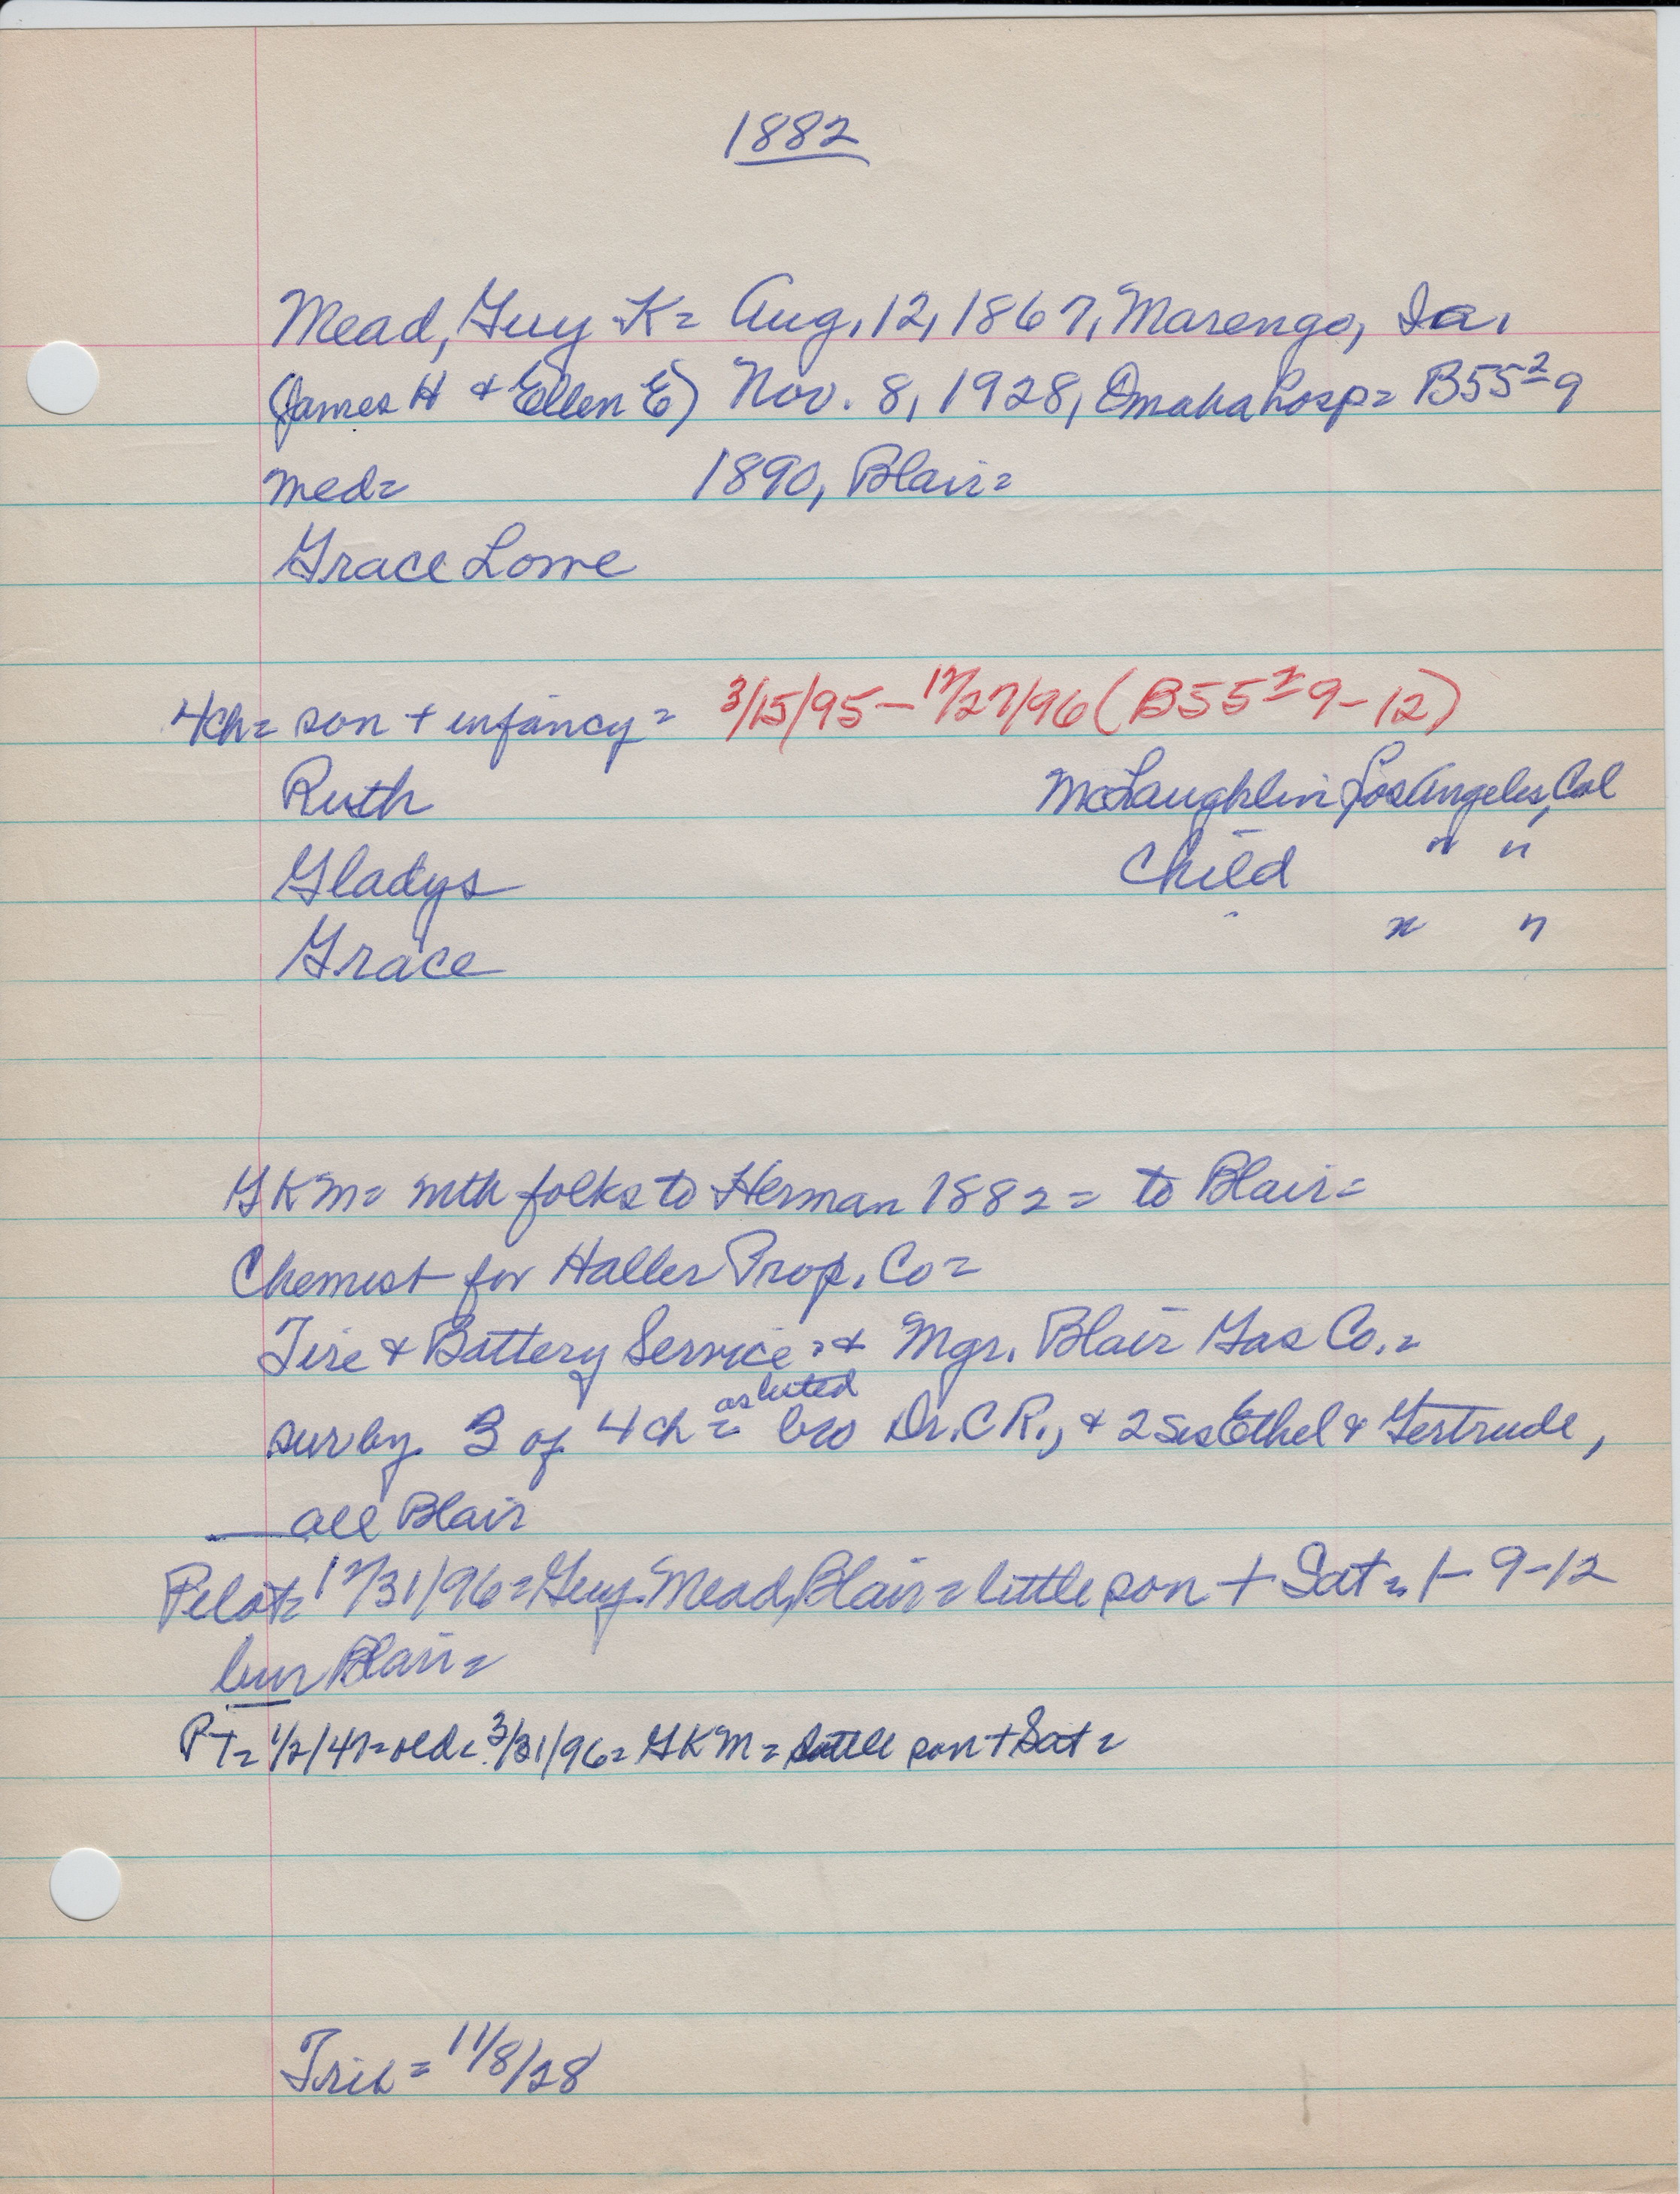 1882
Mead, Guy K= Aug. 12, 1867, Marengo, Ia.
(James H & Ellen E) Nov. 8, 1928, Omaha hosp= B55²-9
med= 1890, Blair=
Grace Lowe
4ch= son + infancy= 3/15/95-12/27/96 (B55²-9-12)
Ruth McLaughlin Los Angeles, Cal
Gladys Child " "
Grace " "
GKM= with folks to Herman 1882= to Blair=
Chemist for Haller Prop. Co=
Tire & Battery Service= & Mgr. Blair Gas Co.=
as listed
sur by 3 of 4ch= bro Dr. C.R., & 2 sis Ethel & Gertrude,
all Blair
Pilot= 12/31/96= Guy Mead, Blair= little son + Sat= 1-9-12
bur Blair=
PT= 1/2/47= old= 3/31/96= GKM= little son + Sat=
Trib= 11/8/28